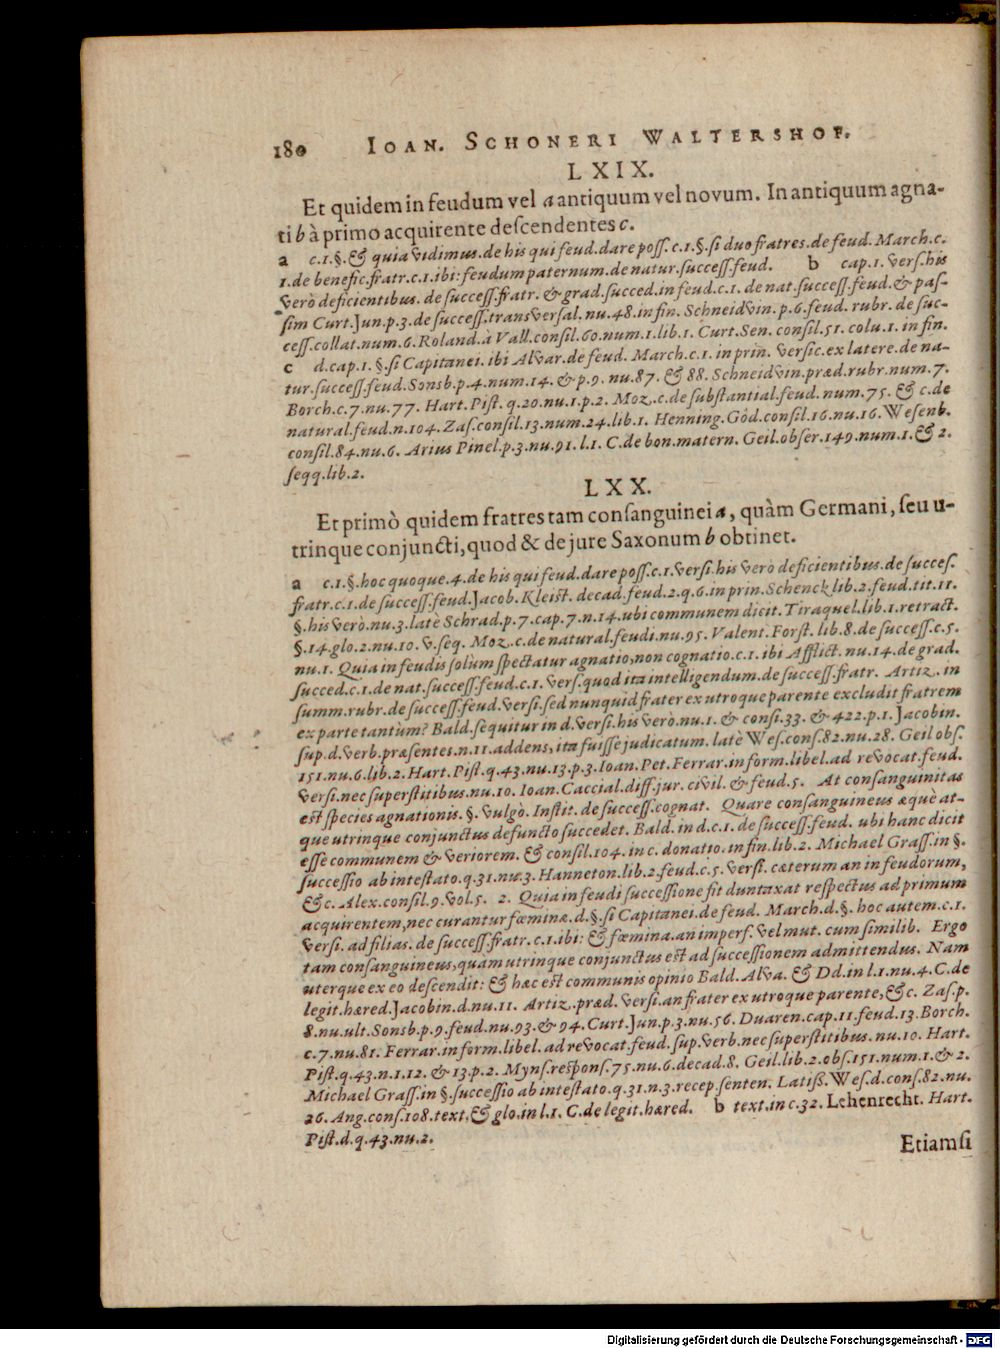 180 IOAN. SCHONERI WALTERSHOF.
LXIX.
Et quidem in feudum vel a antiquum vel novum. In antiquum agna-
ti b à primo acquirente deſcendentes c.
a c.1.§. & quia vidimus. de his qui feud. dare poſſ. c.1.§. ſi duo fratres. de feud. March. c.
1. de benefic. fratr. c.1. ibi: feudum paternum. de natur. ſucceſſ. feud. b cap. 1. verſ. his
verò deficientibus. de ſucceſſ. fratr. & grad. ſucced. in feud. c.1. de nat. ſucceſſ. feud. & paſ-
ſim Curt. Jun. p.3. de ſucceſſ. transverſal. nu. 48. in fin. Schneidvin. p. 6. feud. rubr. de ſuc-
ceſſ. collat. num. 6. Roland. à Vall. conſil. 60. num. 1. lib. 1. Curt. Sen. conſil. 51. colu. 1. in fin.
c d. cap. 1. §. ſi Capitanei. ibi Alvar. de feud. March. c. 1. in prin. verſic. ex latere. de na-
tur. ſucceſſ. feud. Sonsb. p. 4. num. 14. & p. 9. nu. 87. & 88. Schneidvin. præd. rubr. num. 7.
Borch. c. 7. nu. 77. Hart. Piſt. q. 20. nu. 1. p. 2. Moz. c. de ſubſtantial. feud. num. 75. & c. de
natural. feud. n. 104. Zaſ. conſil. 13. num. 24. lib. 1. Henning. God. conſil. 16. nu. 16. Weſenb.
conſil. 84. nu. 6. Arius Pinel. p. 3. nu. 91. l. 1. C. de bon. matern. Geil. obſer. 149. num. 1. & 2.
ſeqq. lib. 2.
LXX.
Et primò quidem fratres tam conſanguinei a, quàm Germani, ſeu u-
trinque conjuncti, quod & de jure Saxonum b obtinet.
a c. 1. §. hoc quoque. 4. de his qui feud. dare poſſ. c. 1. verſi. his verò deficientibus. de ſucceſ.
fratr. c. 1. de ſucceſſ. feud. Jacob. Kleiſt. decad. feud. 2. q. 6. in prin. Schenck lib. 2. feud. tit. 11.
§. his verò. nu. 3. latè Schrad. p. 7. cap. 7. n. 14. ubi communem dicit. Tiraquel. lib. 1. retract.
§. 14. glo. 2. nu. 10. v. ſeq. Moz. c. de natural. feudi. nu. 95. Valent. Forſt. lib. 8. de ſucceſſ. c. 5.
nu. 1. Quia in feudis ſolum ſpectatur agnatio, non cognatio. c. 1. ibi Afflict. nu. 14. de grad.
ſucced. c. 1. de nat. ſucceſſ. feud. c. 1. verſ. quod ita intelligendum. de ſucceſſ. fratr. Artiz. in
ſumm. rubr. de ſucceſſ. feud. verſi. ſed nunquid frater ex utroque parente excludit fratrem
ex parte tantùm? Bald. ſequitur in d. verſi. his verò. nu. 1. & conſi. 33. & 422. p. 1. Jacobin.
ſup. d. verb. præſentes. n. 11. addens, ita fuiſſe judicatum. latè Weſ. conſ. 82. nu. 28. Geil obſ.
151. nu. 6. lib. 2. Hart. Piſt. q. 43. nu. 13. p. 3. Ioan. Pet. Ferrar. in form. libel. ad revocat. feud.
verſi. nec ſuperſtitibus. nu. 10. Ioan. Caccial. diff. jur. civil. & feud. 5. At conſanguinitas
eſt ſpecies agnationis. §. vulgò. Inſtit. de ſucceſſ. cognat. Quare conſanguineus æquè at-
que utrinque conjunctus defuncto ſuccedet. Bald. in d. c. 1. de ſucceſſ. feud. ubi hanc dicit
eſſe communem & veriorem. & conſil. 104. in c. donatio. in fin. lib. 2. Michael Graſſ. in §.
ſucceſſio ab inteſtato. q. 31. nu. 3. Hanneton. lib. 2. feud. c. 5. verſi. cæterum an in feudorum,
&c. Alex. conſil. 9. vol. 5. 2. Quia in feudi ſucceſſione fit duntaxat reſpectus ad primum
acquirentem, nec curantur fœminæ. d. §. ſi Capitanei. de feud. March. d. §. hoc autem. c. 1.
verſi. ad filias. de ſucceſſ. fratr. c. 1. ibi: & fœmina. an imperſ. vel mut. cum ſimilib. Ergo
tam conſanguineus, quàm utrinque conjunctus eſt ad ſucceſſionem admittendus. Nam
uterque ex eo deſcendit: & hæc eſt communis opinio Bald. Alva. & Dd. in l. 1. nu. 4. C. de
legit. hæred. Jacobin. d. nu. 11. Artiz. præd. verſi. an frater ex utroque parente, &c. Zaſ. p.
8. nu. ult. Sonsb. p. 9. feud. nu. 93. & 94. Curt. Jun. p. 3. nu. 56. Duaren. cap. 11. feud. 13. Borch.
c. 7. nu. 81. Ferrar. in form. libel. ad revocat. feud. ſup. verb. nec ſuperſtitibus. nu. 10. Hart.
Piſt. q. 43. n. 1. 12. & 13. p. 2. Mynſ. reſponſ. 75. nu. 6. decad. 8. Geil. lib. 2. obſ. 151. num. 1. & 2.
Michael Graſſ. in §. ſucceſſio ab inteſtato. q. 31. n. 3. recep. ſenten. Latiſs. Weſ. d. conſ. 82. nu.
26. Ang. conſ. 108. text. & glo. in l. 1. C. de legit. hæred. b text. in c. 32. Lehenrecht. Hart.
Piſt. d. q. 43. nu. 2.
Etiamſi
Digitalisierung gefördert durch die Deutsche Forschungsgemeinschaft - DFG